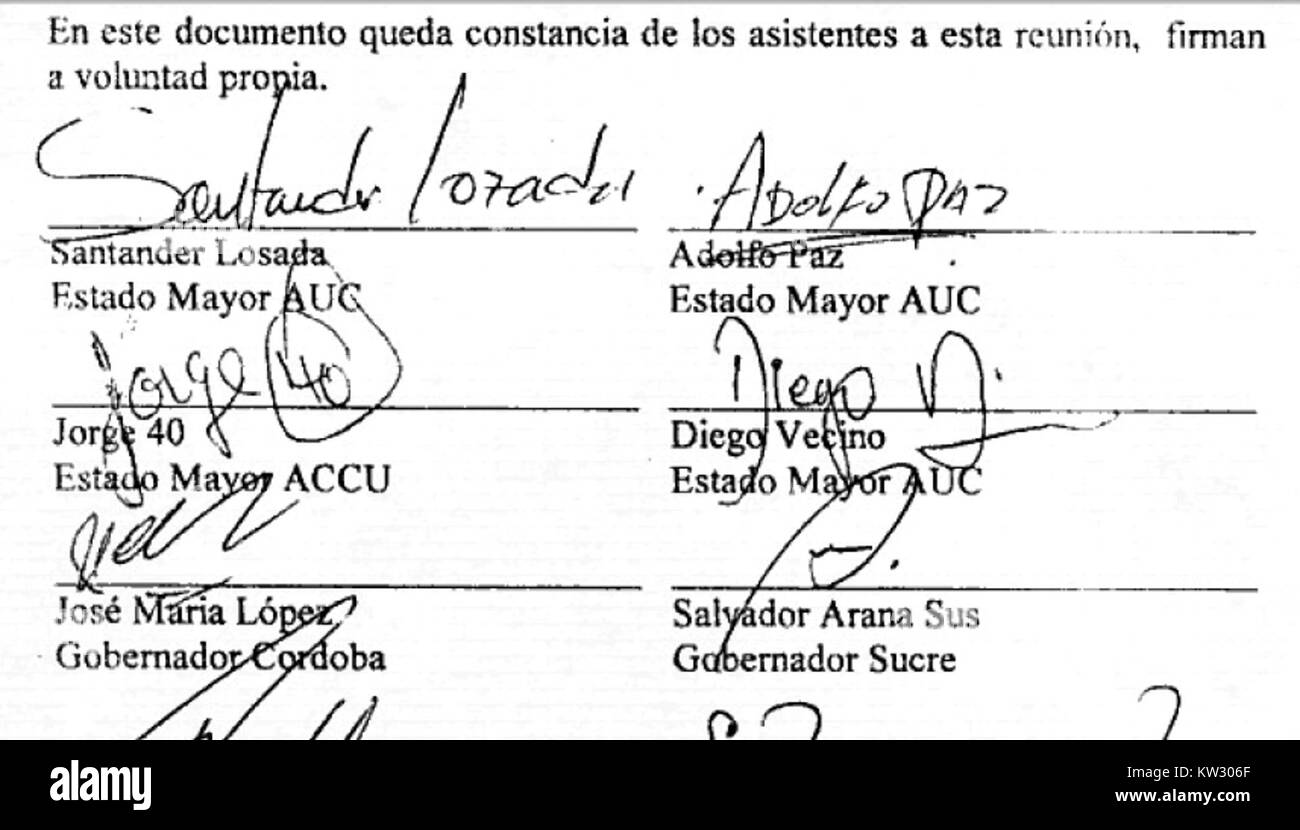 En este documento queda constancia de los asistentes a esta reunión, firman
a voluntad propia.
Santander Lozada
Adolfo Paz
Santander Losada
Estado Mayor AUC
Adolfo Paz
Estado Mayor AUC
Jorge 40
Diego V.
Jorge 40
Estado Mayor ACCU
Diego Vecino
Estado Mayor AUC
José María López
Gobernador Cordoba
Salvador Arana Sus
Gobernador Sucre
alamy
Image ID: KW306F
www.alamy.com